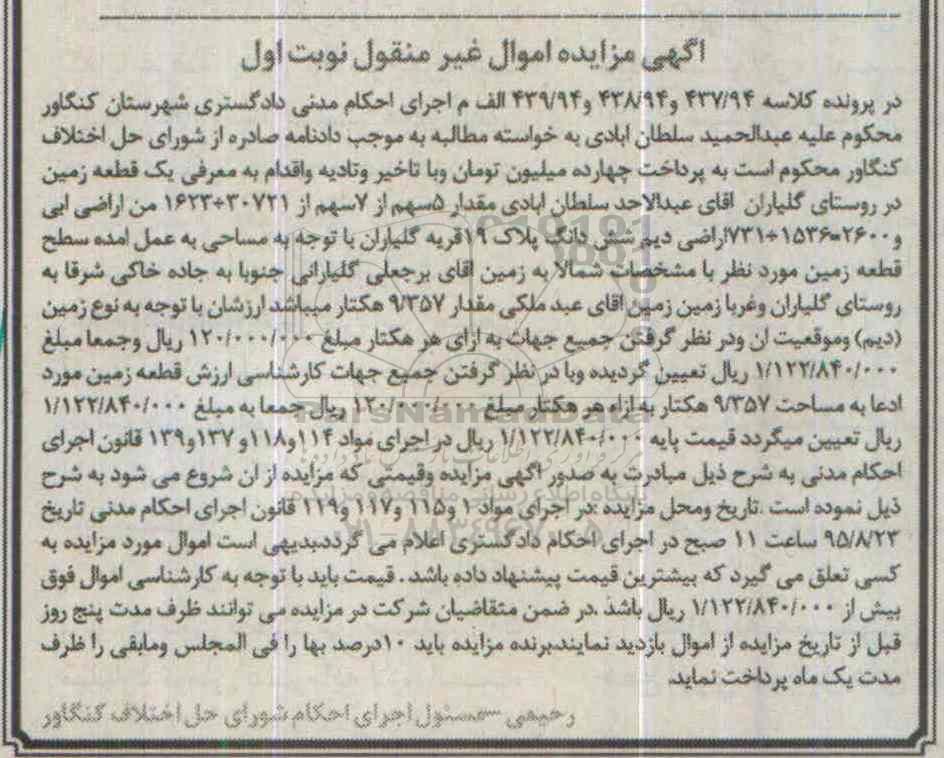 اگهی مزایده اموال غیر منقول نوبت اول
در پرونده کلاسه ۴۳۷/۹۴ و۴۳۸/۹۴ و۴۳۹/۹۴ الف م اجرای احکام مدنی دادگستری شهرستان کنگاور
محکوم علیه عبدالحمید سلطان ابادی به خواسته مطالبه به موجب دادنامه صادره از شورای حل اختلاف
کنگاور محکوم است به پرداخت چهارده میلیون تومان وبا تاخیر وتادیه واقدام به معرفی یک قطعه زمین
در روستای گلیاران اقای عبدالاحد سلطان ابادی مقدار ۵سهم از ۷سهم از ۳۰۷۲۱÷۱۶۲۳ من اراضی ابی
و ۲۶۰۰=۱۵۳۶÷۷۳۱اراضی دیم شش دانگ پلاک ۱۹قریه گلیاران با توجه به مساحی به عمل امده سطح
قطعه زمین مورد نظر با مشخصات شمالا به زمین اقای برجعلی گلیارانی جنوبا به جاده خاکی شرقا به
روستای گلیاران وغربا زمین زمین اقای عبد ملکی مقدار ۹/۳۵۷ هکتار میباشد ارزشان با توجه به نوع زمین
(دیم) وموقعیت ان ودر نظر گرفتن جمیع جهات به ازای هر هکتار مبلغ ۱۲۰/۰۰۰/۰۰۰ ریال وجمعا مبلغ
۱/۱۲۲/۸۴۰/۰۰۰ ریال تعیین گردیده وبا در نظر گرفتن جمیع جهات کارشناسی ارزش قطعه زمین مورد
ادعا به مساحت ۹/۳۵۷ هکتار به ازاء هر هکتار مبلغ ۱۲۰/۰۰۰/۰۰۰ ریال جمعا به مبلغ ۱/۱۲۲/۸۴۰/۰۰۰
ریال تعیین میگردد قیمت پایه ۱/۱۲۲/۸۴۰/۰۰۰ ریال در اجرای مواد ۱۱۴و۱۱۸و ۱۳۷و۱۳۹ قانون اجرای
احکام مدنی به شرح ذیل مبادرت به صدور اگهی مزایده وقیمتی که مزایده از ان شروع می شود به شرح
ذیل نموده است .تاریخ ومحل مزایده :در اجرای مواد ۱ و۱۱۵ و۱۱۷ و۱۱۹ قانون اجرای احکام مدنی تاریخ
۹۵/۸/۲۳ ساعت ۱۱ صبح در اجرای احکام دادگستری اعلام می گردد.بدیهی است اموال مورد مزایده به
کسی تعلق می گیرد که بیشترین قیمت پیشنهاد داده باشد . قیمت باید با توجه به کارشناسی اموال فوق
بیش از ۱/۱۲۲/۸۴۰/۰۰۰ ریال باشد .در ضمن متقاضیان شرکت در مزایده می توانند ظرف مدت پنج روز
قبل از تاریخ مزایده از اموال بازدید نمایند.برنده مزایده باید ۱۰درصد بها را فی المجلس ومابقی را ظرف
مدت یک ماه پرداخت نماید.
رحیمی –مسئول اجرای احکام شورای حل اختلاف کنگاور
ParsNamadData
پایگاه اطلاع رسانی مناقصه و مزایده